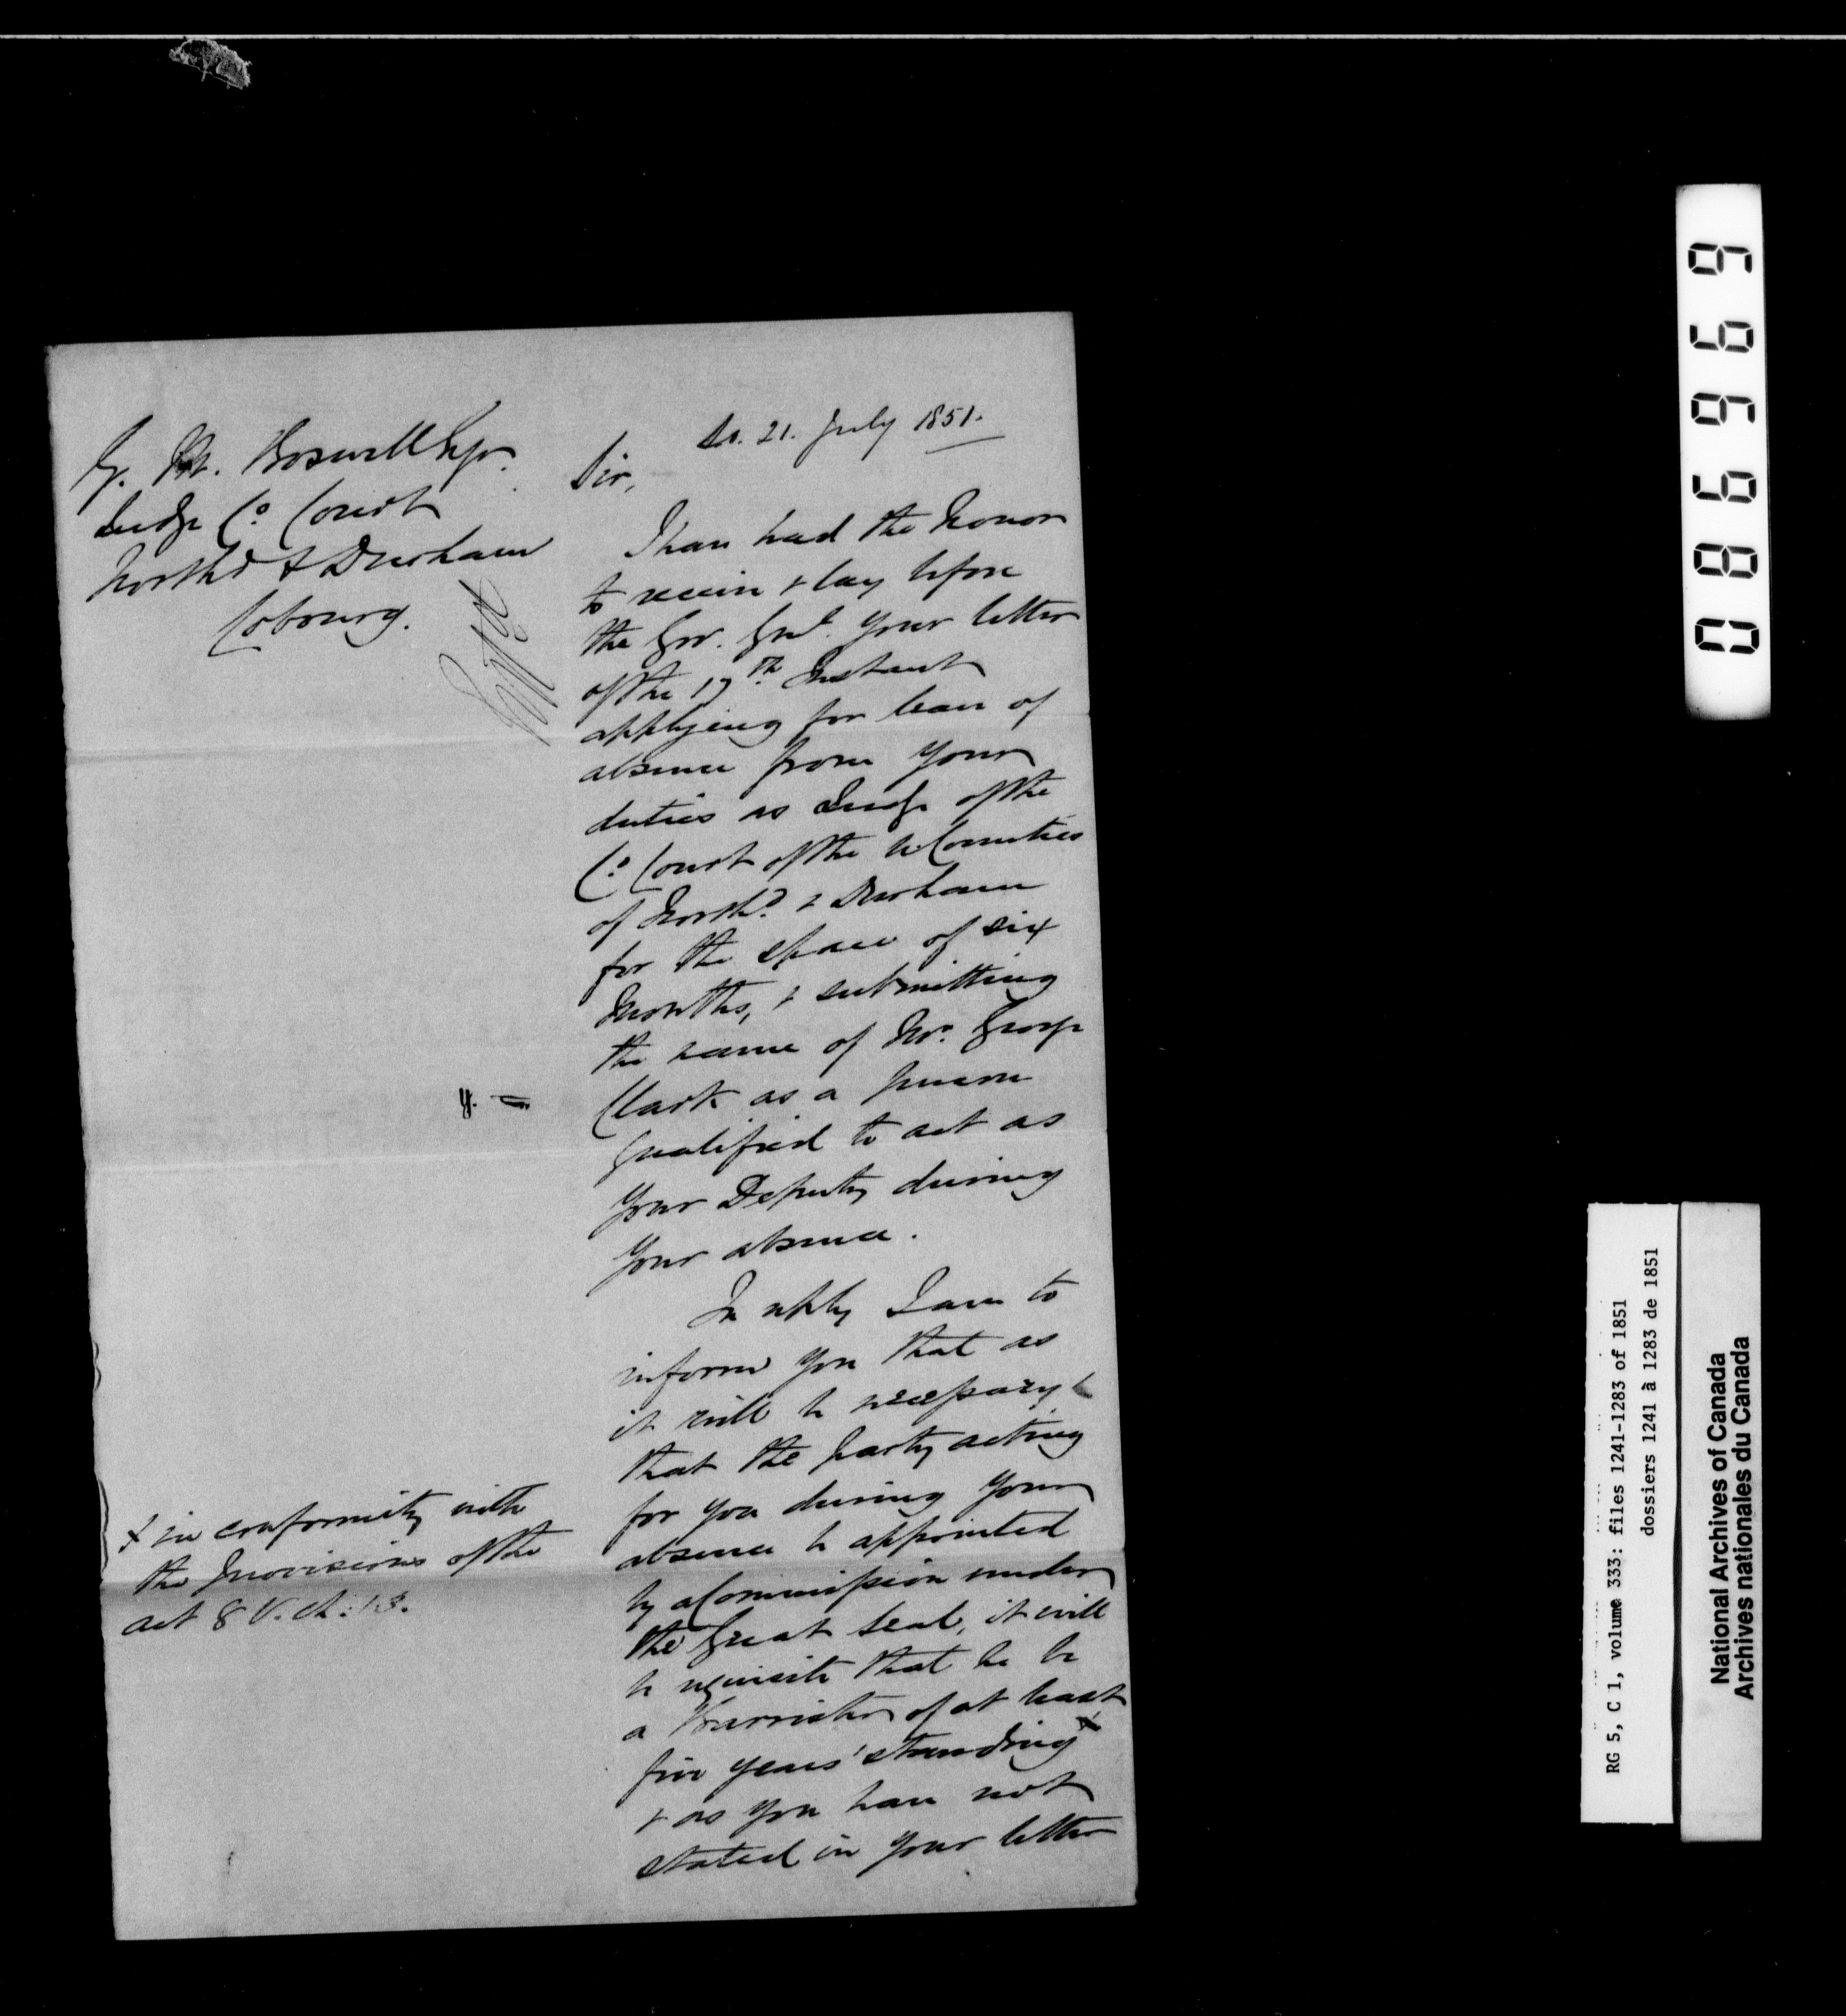 G. M. Boswell Esqr.
Judge Co. Court
Northd & Durham
Cobourg.
21. July 1851.
Sir,
I have had the honor
to receive & lay before
the Gov. Genl. your letter
of the 17th Instant
applying for leave of
absence from your
duties as Judge of the
Co. Court of the U. Counties
of Northd. & Durham
for the space of six
months, & submitting
the name of Mr. George
Clark as a person
qualified to act as
your Deputy during
your absence.
In reply I am to
inform you that as
it will be necessary
that the party acting
for you during your
absence be appointed
by a Commission under
the Great Seal, it will
be requisite that he be
a Barrister of at least
five years' standing x
& as you have not
stated in your letter
x in conformity with
the provisions of the
act 8 V. ch. 13.
086969
RG 5, C 1, volume 333: files 1241-1283 of 1851
dossiers 1241 à 1283 de 1851
National Archives of Canada
Archives nationales du Canada